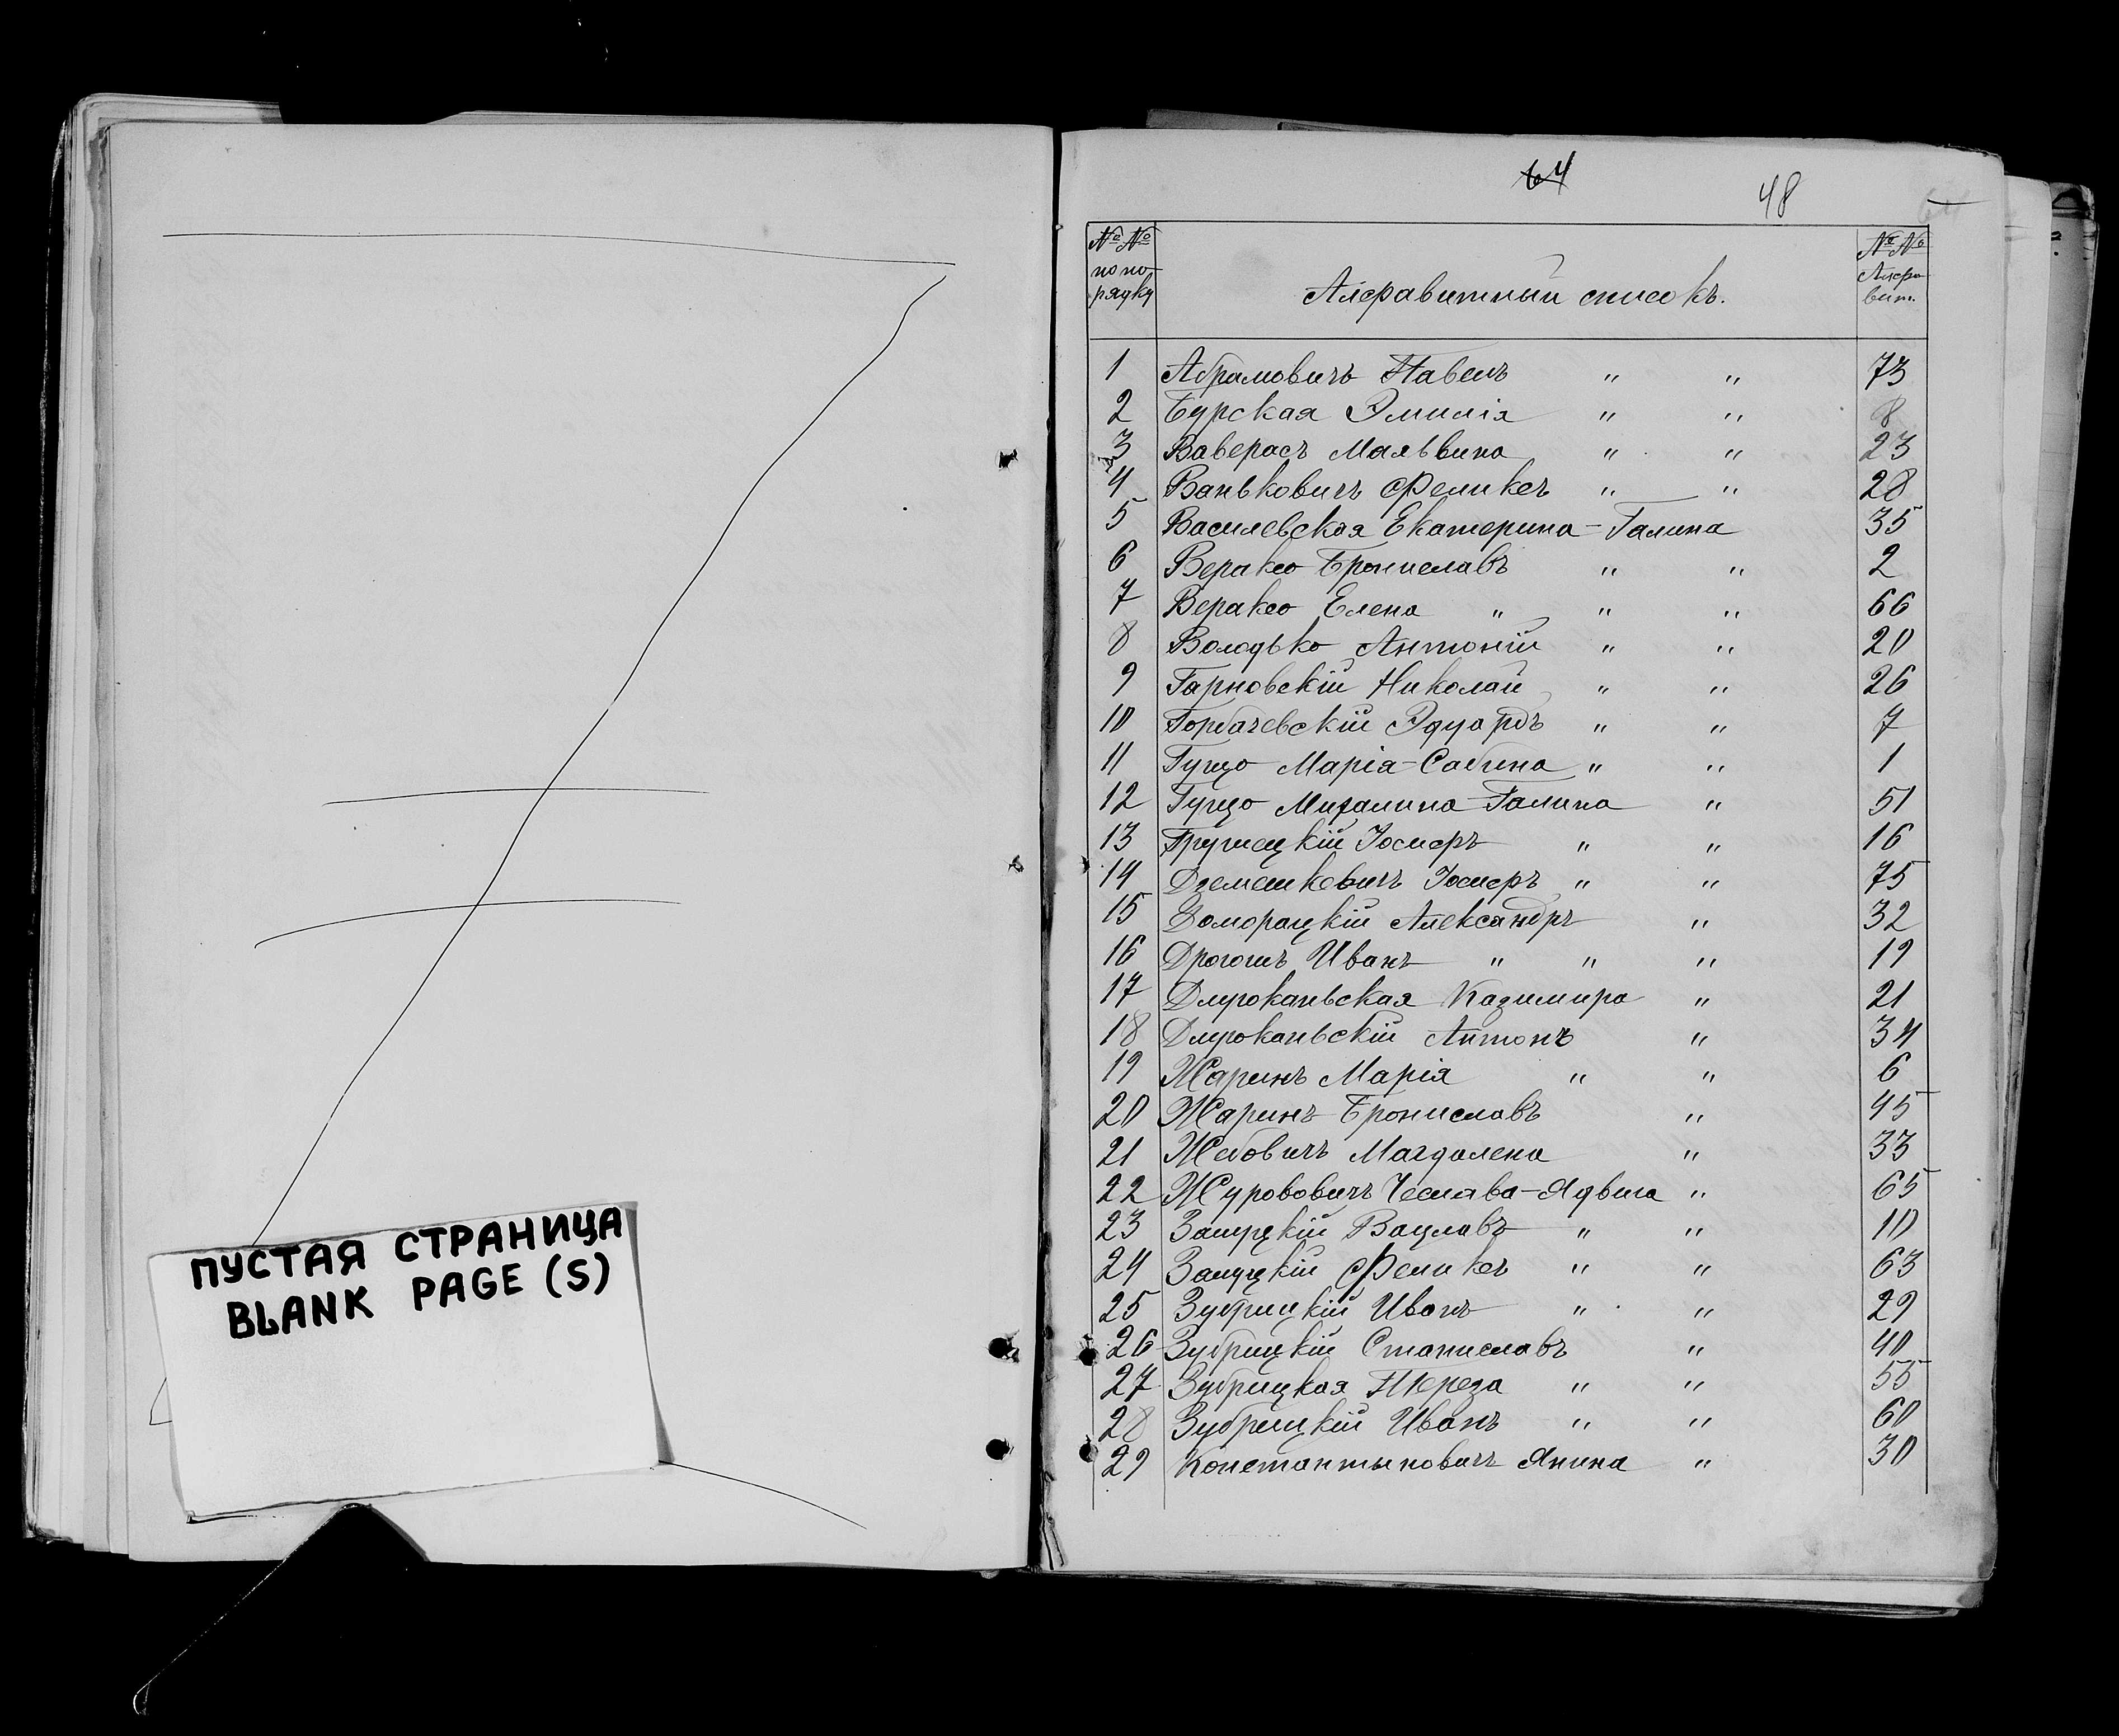 ПУСТАЯ СТРАНИЦА
BLANK PAGE (S)
64
48
№ №
по по-
рядку
Алфавитный списокъ.
№ №
Алфа
вит.
1 Абрамовичъ Павелъ " " 73
2 Бурская Эмилія " " 8
3 Ваверасъ Мальвина " " 23
4 Ваньковичъ Феликсъ " " 28
5 Василевская Екатерина-Галина 35
6 Вераксо Брониславъ " " 2
7 Вераксо Елена " " " 66
8 Володько Антоній " " 20
9 Гарновскій Николай " " 26
10 Горбачевскій Эдуардъ " " 7
11 Гущо Марія-Сабина " " 1
12 Гущо Михалина-Галина " 51
13 Грушецкій Іосифъ " " 16
14 Дземешкевичъ Іосифъ " " 75
15 Доморацкій Александръ " 32
16 Дрогошъ Иванъ " " " 19
17 Длуроканьская Казимира " 21
18 Длуроканьскій Антонъ " 34
19 Жаринъ Марія " " 6
20 Жаринъ Брониславъ " 45
21 Жебовичъ Магдалена " 33
22 Журововичъ Чеслава-Ядвига " 65
23 Вацлавъ " " 10
24 Феликсъ " " 63
25 Зубрицкій Иванъ " " 29
26 Зубрицкій Станиславъ " 40
27 Зубрицкая Тереза " " 55
28 Зубрицкій Иванъ " " 60
29 Константыновичъ Янина " 30